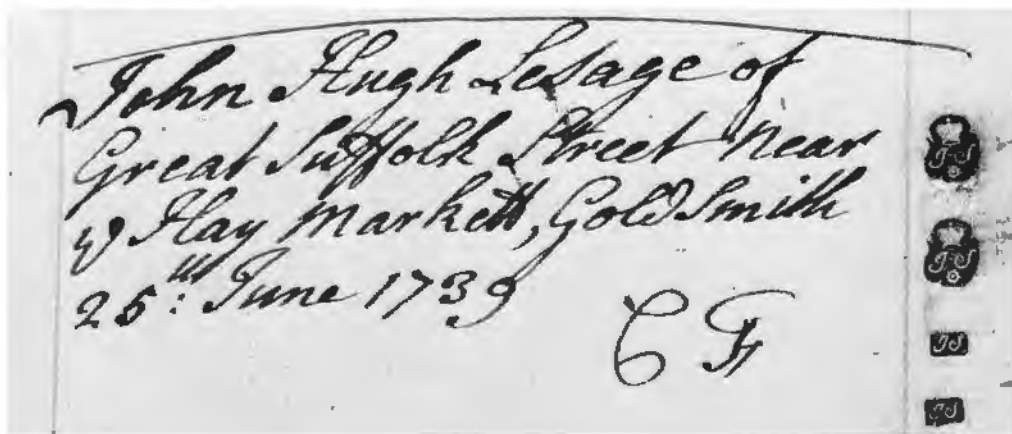 John Hugh Lesage of
Great Suffolk Street Near
ye Hay Markett, GoldSmith
25:th June 1739
C F
JS
JS
JS
JS